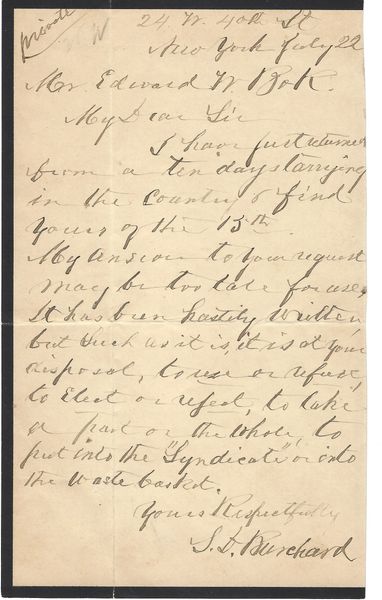 private
24. W. 40th St
New York July 22
Mr. Edward W. Bok.
My Dear Sir
I have just returned
from a ten days tarrying
in the country & find
yours of the 15th
My answer to your request
may be too late for use,
It has been hastily written,
but such as it is, it is at your
disposal, to use or refuse,
to Elect or reject, to take
a part or the whole, to
put into the "Syndicate" or into
the waste basket.
Yours Respectfully
S. D. Burchard